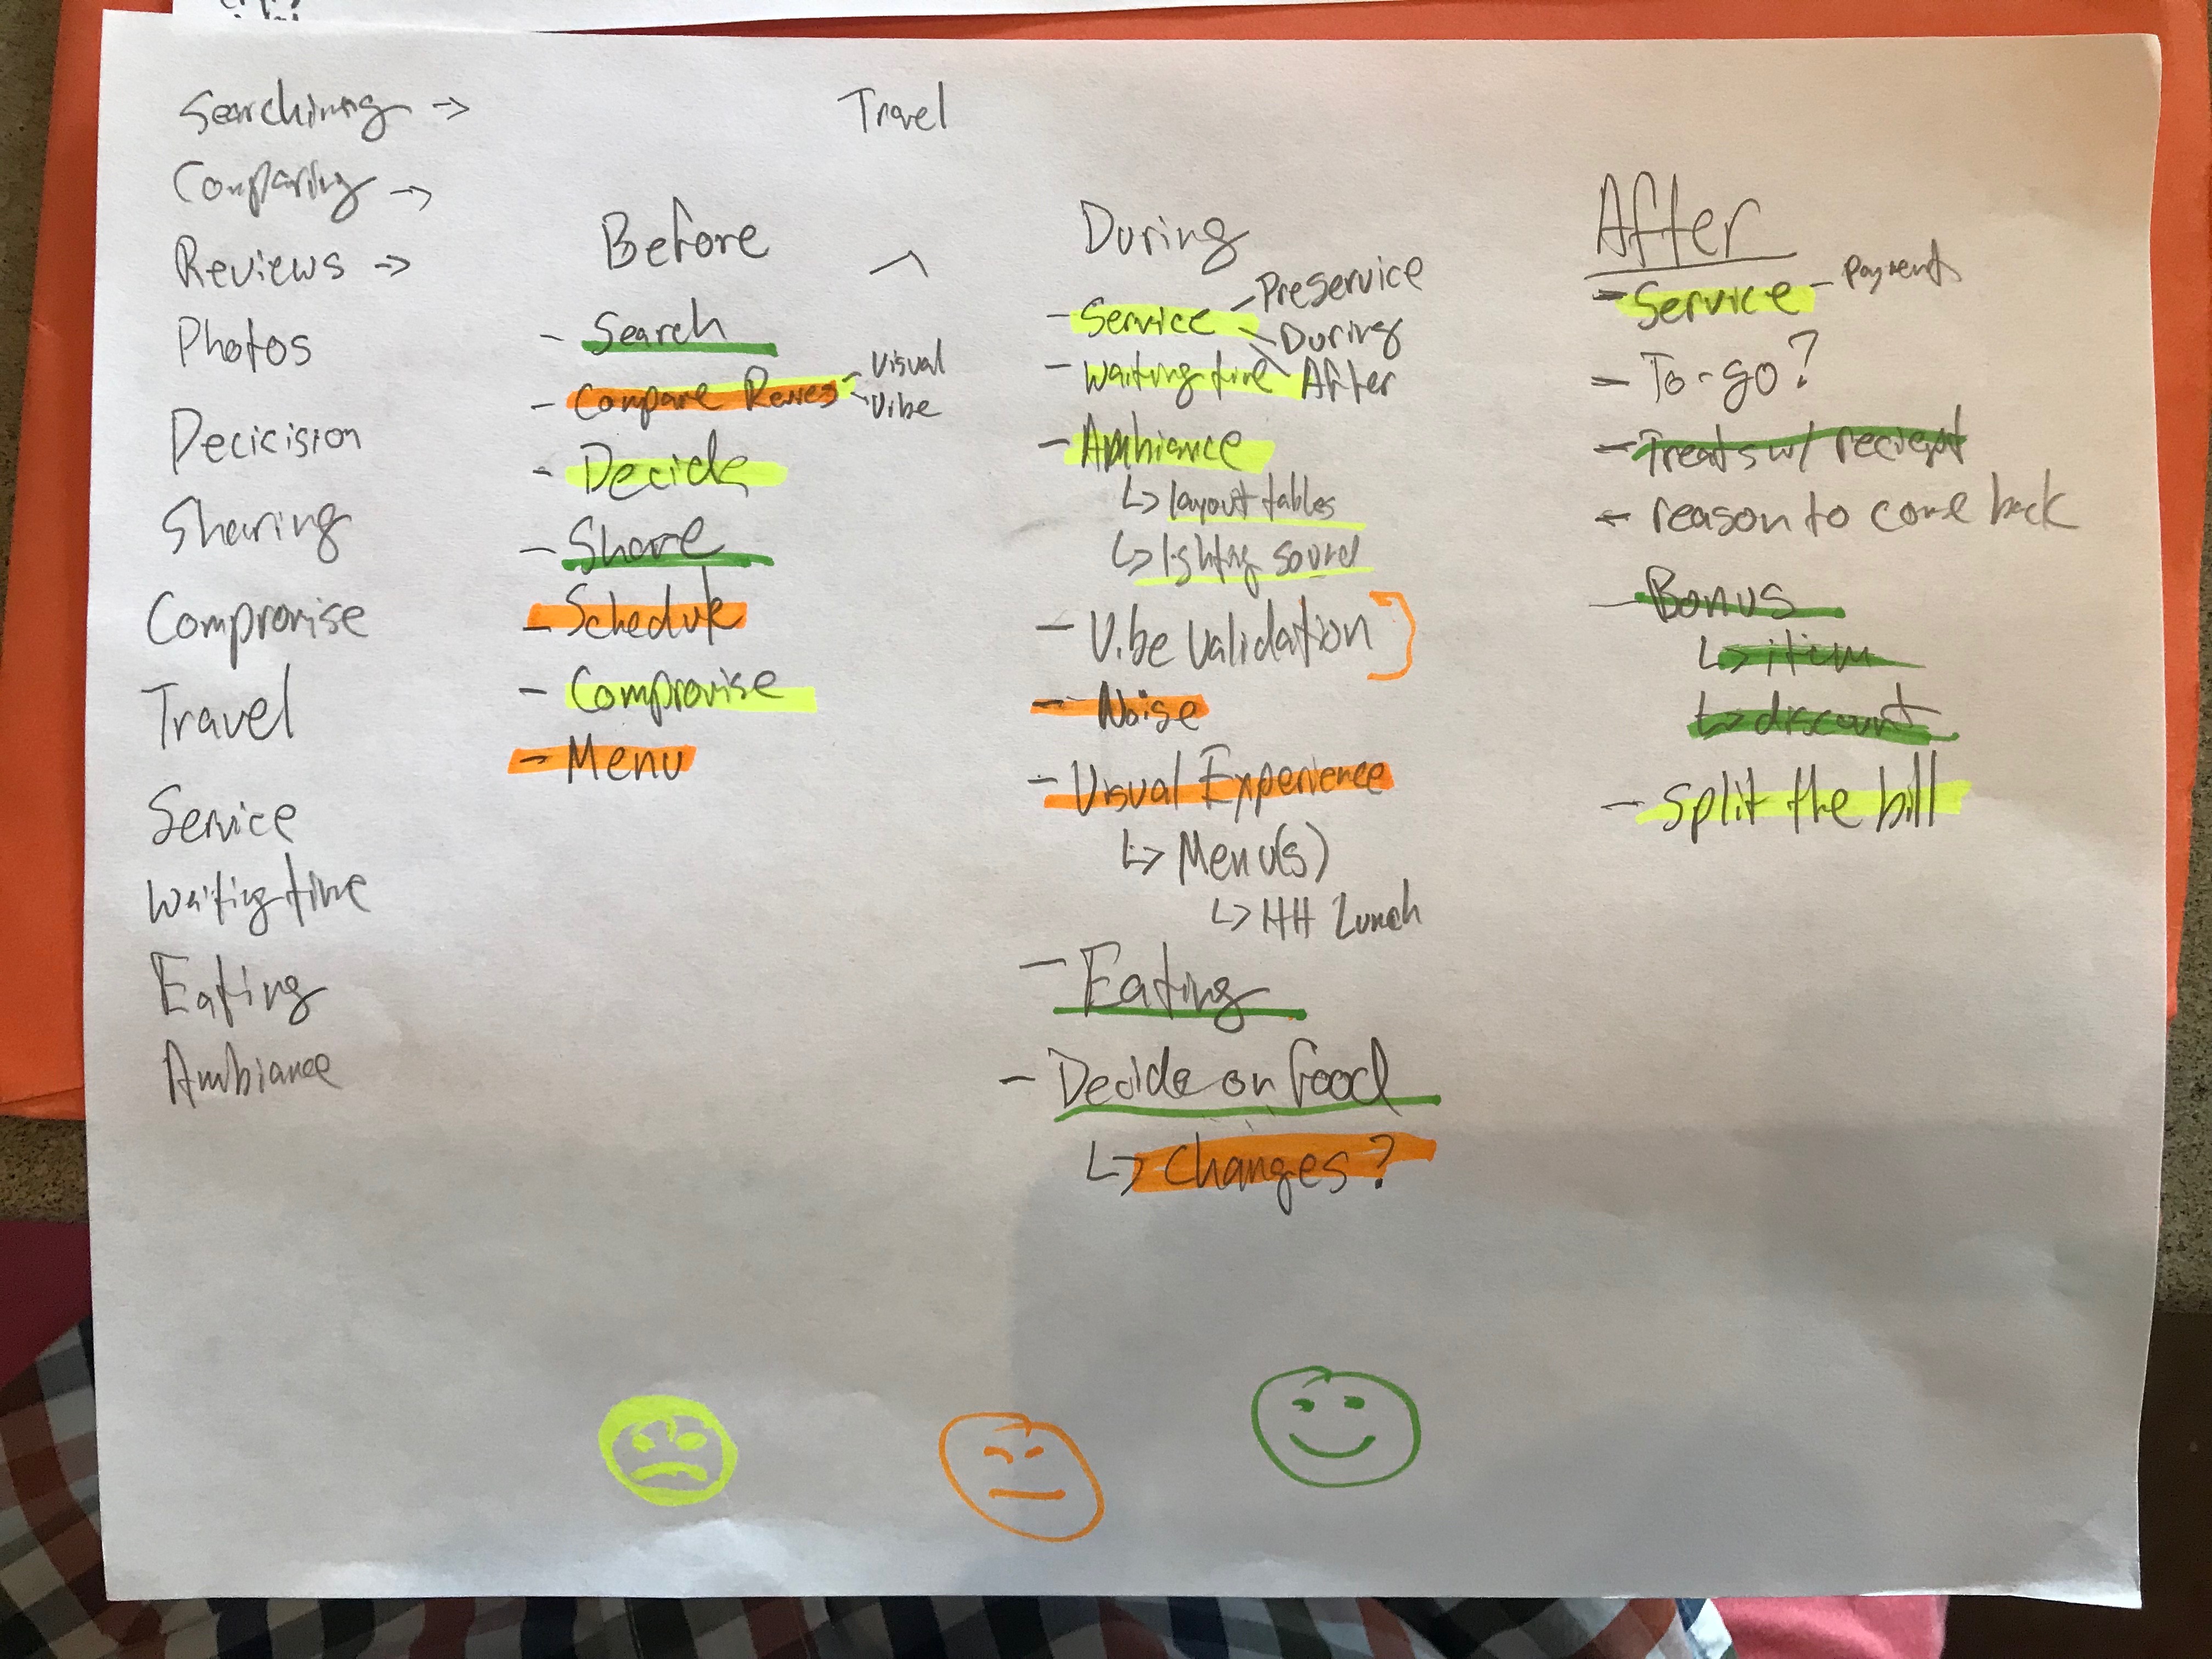 Searchinng →
Comparing →
Reviews →
Photos
Decicision
Sharing
Compromise
Travel
Service
Waiting time
Eating
Ambiance
Travel
Before
- Search
- Compare Reviews - Visual
- Vibe
- Decide
- Share
- Schedule
- Compromise
- Menu
During
- Service - Preservice
- During
- Waiting time After
- Ambiance
↳ layout tables
↳ lighting sound
- Vibe validation
- Noise
- Visual Experience
↳ Menu(s)
↳ HH Lunch
- Eating
- Decide on food
↳ Changes?
After
- Service - Payment
- To-go?
- Treats w/ reciept
- reason to come back
- Bonus
↳ item
↳ discount
- Split the bill